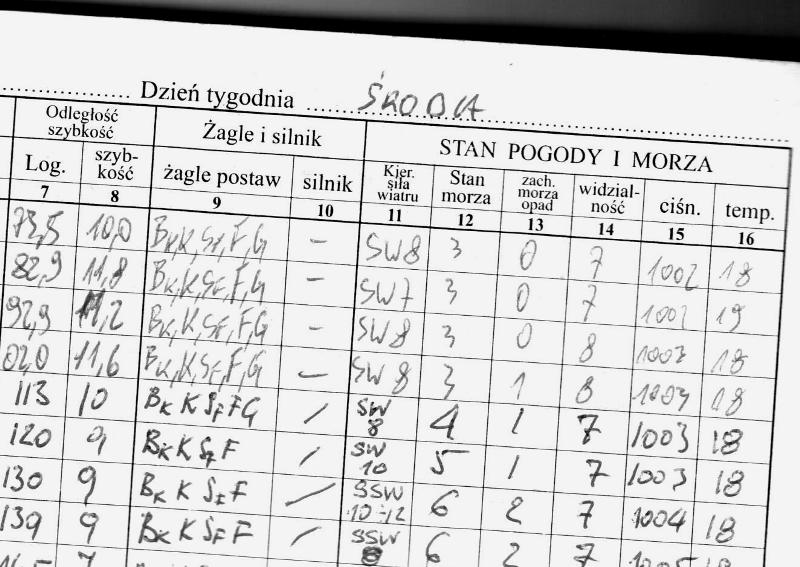 Dzień tygodnia ŚRODA
Odległość szybkość Żagle i silnik STAN POGODY I MORZA
Log. szyb-kość żagle postaw silnik Kier. siła wiatru Stan morza zach. morza opad widzial-ność ciśn. temp.
7 8 9 10 11 12 13 14 15 16
73,5 10,0 BK,K,SF,F,G – SW8 3 0 7 1002 18
82,9 11,8 BK,K,SF,F,G – SW7 3 0 7 1002 19
92,9 11,2 BK,K,SF,F,G – SW8 3 0 8 1003 18
02,0 11,6 BK,K,SF,F,G – SW8 3 1 8 1003 18
113 10 BK K SF F G / SW 8 4 1 7 1003 18
120 9 BK K SF F / SW 10 5 1 7 1003 18
130 9 BK K SF F / SSW 10-12 6 2 7 1004 18
139 9 BK K SF F / SSW 8 6 2 7 1005 18